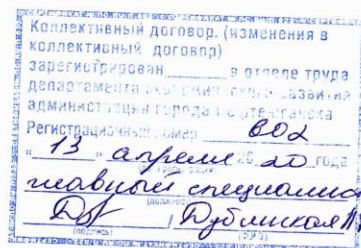 Коллективный договор. (изменения в
коллективный договор)
зарегистрирован ______ в отделе труда
департамента экономического развития
администрации города
Регистрационный номер 602
« 13 » апреля 20 20 года
главный специалист
(должность)
/ Дублинская
(подпись) (ФИО)